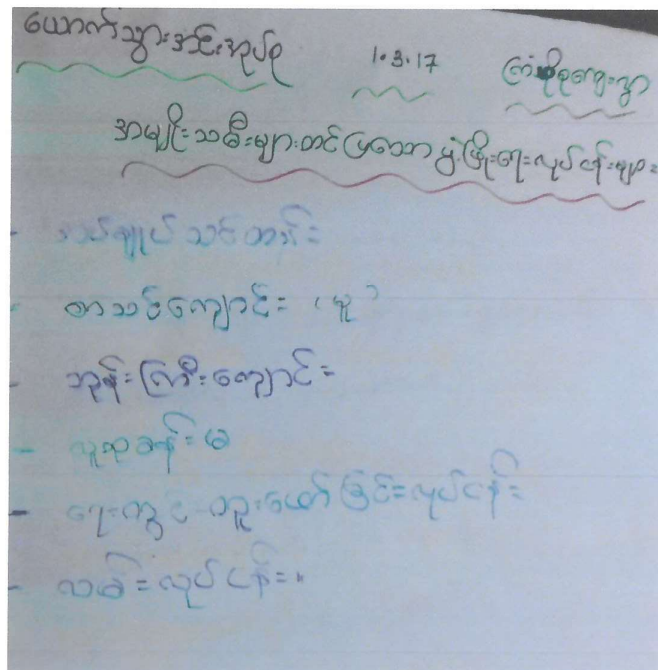 ယောက်သွားအင်းအုပ်စု 1.3.17 ကြံစုကျေးရွာ
အမျိုးသမီးများတင်ပြသော ဖွံ့ဖြိုးရေးလုပ်ငန်းများ
- အပ်ချုပ်သင်တန်း
- စာသင်ကျောင်း (မူ)
- ဘုန်းကြီးကျောင်း
- လူစုခန်းမ
- ရေကန် တူးဖော်ခြင်းလုပ်ငန်း
- လမ်းလုပ်ငန်း။